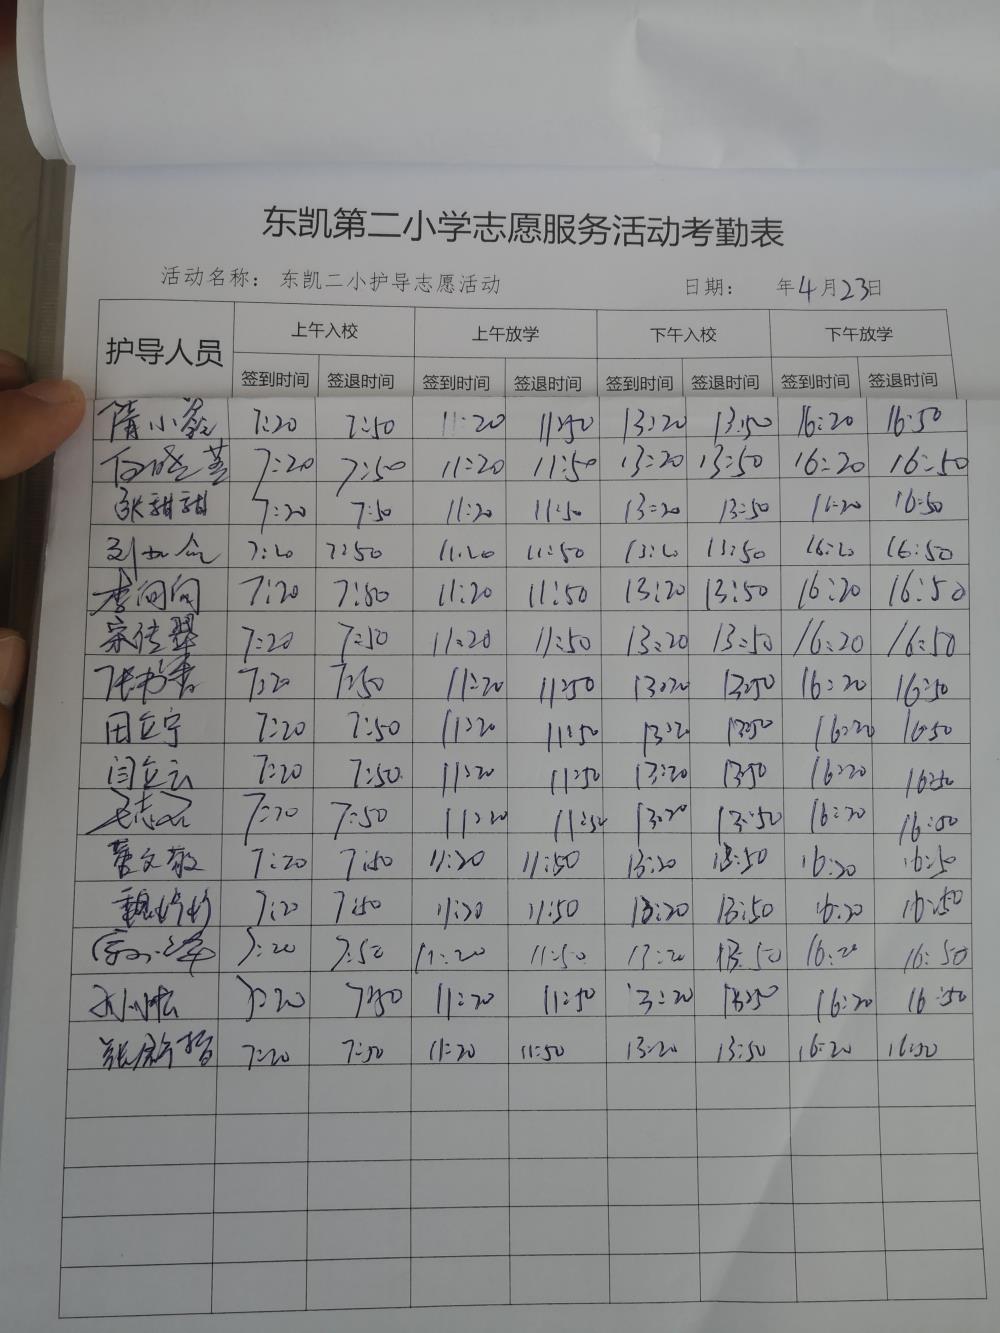 东凯第二小学志愿服务活动考勤表
活动名称： 东凯二小护导志愿活动 日期： 年4月23日
护导人员 上午入校 上午放学 下午入校 下午放学
签到时间 签退时间 签到时间 签退时间 签到时间 签退时间 签到时间 签退时间
隋小 7:20 7:50 11:20 11:50 13:20 13:50 16:20 16:50
7:20 7:50 11:20 11:50 13:20 13:50 16:20 16:50
张甜甜 7:20 7:50 11:20 11:50 13:20 13:50 16:20 16:50
刘 7:20 7:50 11:20 11:50 13:20 13:50 16:20 16:50
李向向 7:20 7:50 11:20 11:50 13:20 13:50 16:20 16:50
宋传翠 7:20 7:50 11:20 11:50 13:20 13:50 16:20 16:50
张 7:20 7:50 11:20 11:50 13:20 13:50 16:20 16:50
田立宁 7:20 7:50 11:20 11:50 13:20 13:50 16:20 16:50
闫立云 7:20 7:50 11:20 11:50 13:20 13:50 16:20 16:50
志 7:20 7:50 11:20 11:50 13:20 13:50 16:20 16:50
董文敏 7:20 7:50 11:20 11:50 13:20 13:50 16:20 16:50
魏 7:20 7:50 11:20 11:50 13:20 13:50 16:20 16:50
7:20 7:50 11:20 11:50 13:20 13:50 16:20 16:50
7:20 7:50 11:20 11:50 13:20 13:50 16:20 16:50
张 7:20 7:50 11:20 11:50 13:20 13:50 16:20 16:50